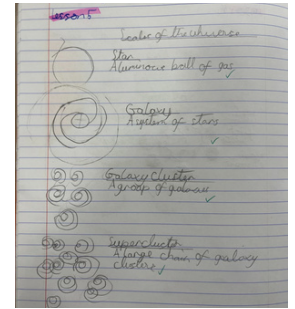 Lesson 5
Scale of the universe
Star
A luminous ball of gas
Galaxy
A system of stars
Galaxy Cluster
A group of galaxies
Supercluster
A large chain of galaxy
clusters